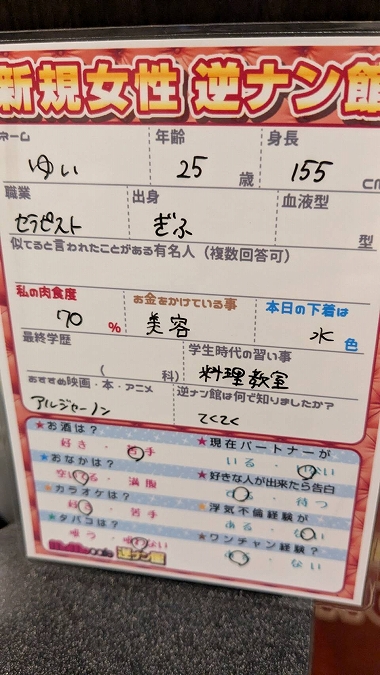 新規女性 逆ナン館
ネーム 年齢 身長
ゆい 25 歳 155 cm
職業 出身 血液型
セラピスト ぎふ 型
似てると言われたことがある有名人（複数回答可）
私の肉食度 お金をかけている事 本日の下着は
70 % 美容 水 色
最終学歴 学生時代の習い事
( 科) 料理教室
おすすめ映画・本・アニメ 逆ナン館は何で知りましたか？
アルジャーノン てくてく
★お酒は？ ★現在パートナーが
好き・苦手 いる・いない
★おなかは？ ★好きな人が出来たら告白
空いてる・満腹 する・待つ
★カラオケは？ ★浮気不倫経験が
好き・苦手 ある・ない
★タバコは？ ★ワンチャン経験？
吸う・吸わない ある・ない
逆ナン館